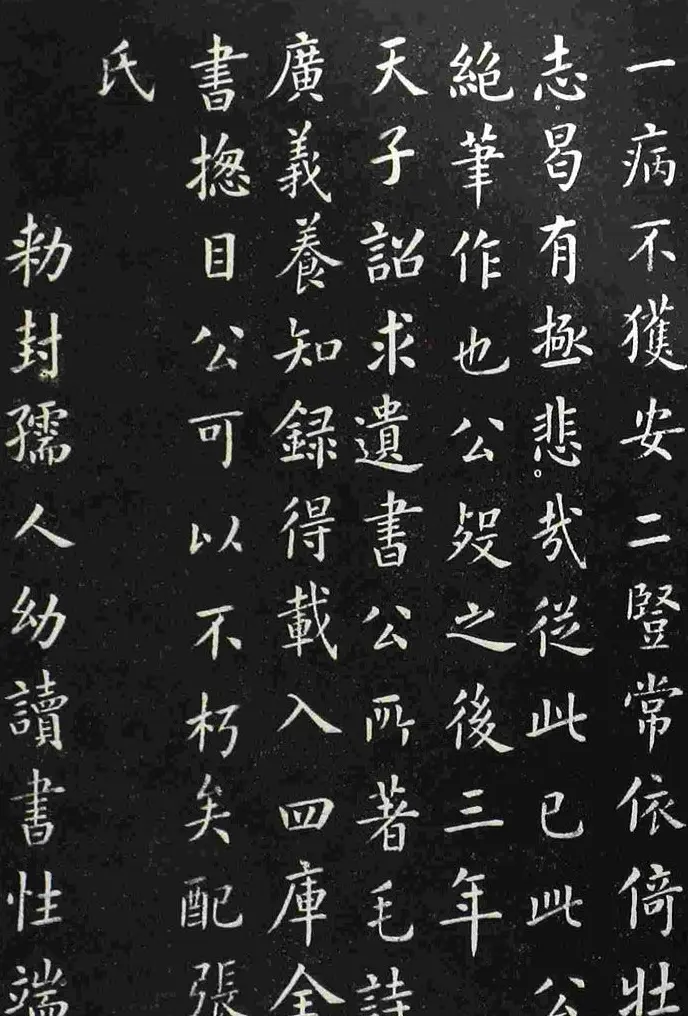 一病不獲安二豎常依倚壯
志曷有極悲哉從此已此公
絕筆作也公歿之後三年
天子詔求遺書公所著毛詩
廣義養知録得載入四庫全
書揔目公可以不朽矣配張
氏
勑封孺人幼讀書性端